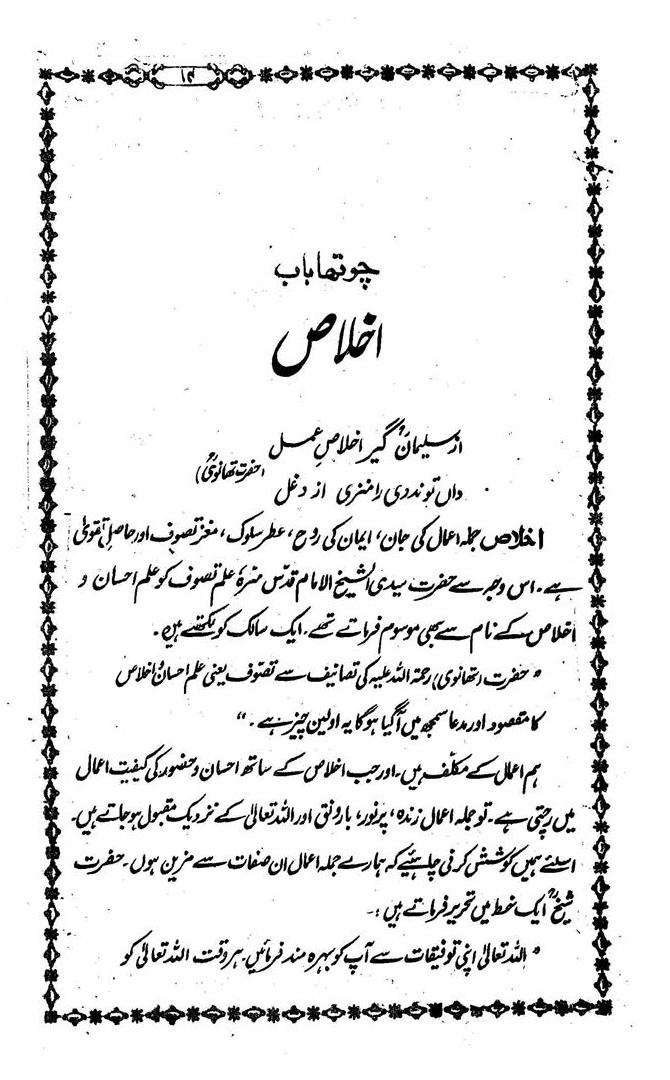 ۱۴
چوتھا باب
اخلاص
از سلیمانؒ گیر اخلاصِ عمل
(حضرت تھانویؒ)
داں تو ندوی را منزہ از دغل
اخلاص جملہ اعمال کی جان، ایمان کی روح، عطر سلوک، مغز تصوف اور حاصل تقویٰ
ہے۔ اس وجہ سے حضرت سیدی الشیخ الامام قدس سرہٗ علم تصوف کو علم احسان و
اخلاص کے نام سے بھی موسوم فرماتے تھے۔ ایک سالک کو لکھتے ہیں۔
"حضرت (تھانوی) رحمۃ اللہ علیہ کی تصانیف سے تصوف یعنی علم احسان و اخلاص
کا مقصود اور مدعا سمجھ میں آگیا ہوگا یہ اولین چیز ہے۔"
ہم اعمال کے مکلف ہیں۔ اور جب اخلاص کے ساتھ احسان و حضور کی کیفیت اعمال
میں رچتی ہے۔ تو جملہ اعمال زندہ، پرنور، بارونق اور اللہ تعالیٰ کے نزدیک مقبول ہوجاتے ہیں۔
اسلئے ہمیں کوشش کرنی چاہئیے کہ ہمارے جملہ اعمال ان صفات سے مزین ہوں۔ حضرت
شیخؒ ایک خط میں تحریر فرماتے ہیں :۔
"اللہ تعالیٰ اپنی توفیقات سے آپ کو بہرہ مند فرمائیں۔ ہر وقت اللہ تعالیٰ کو